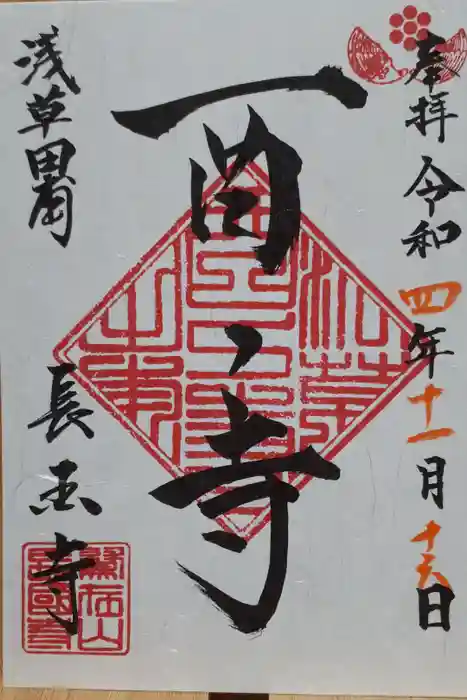 奉拝 令和四年十一月十六日
酉之寺
浅草田甫
長国寺
鷲在山
長國寺